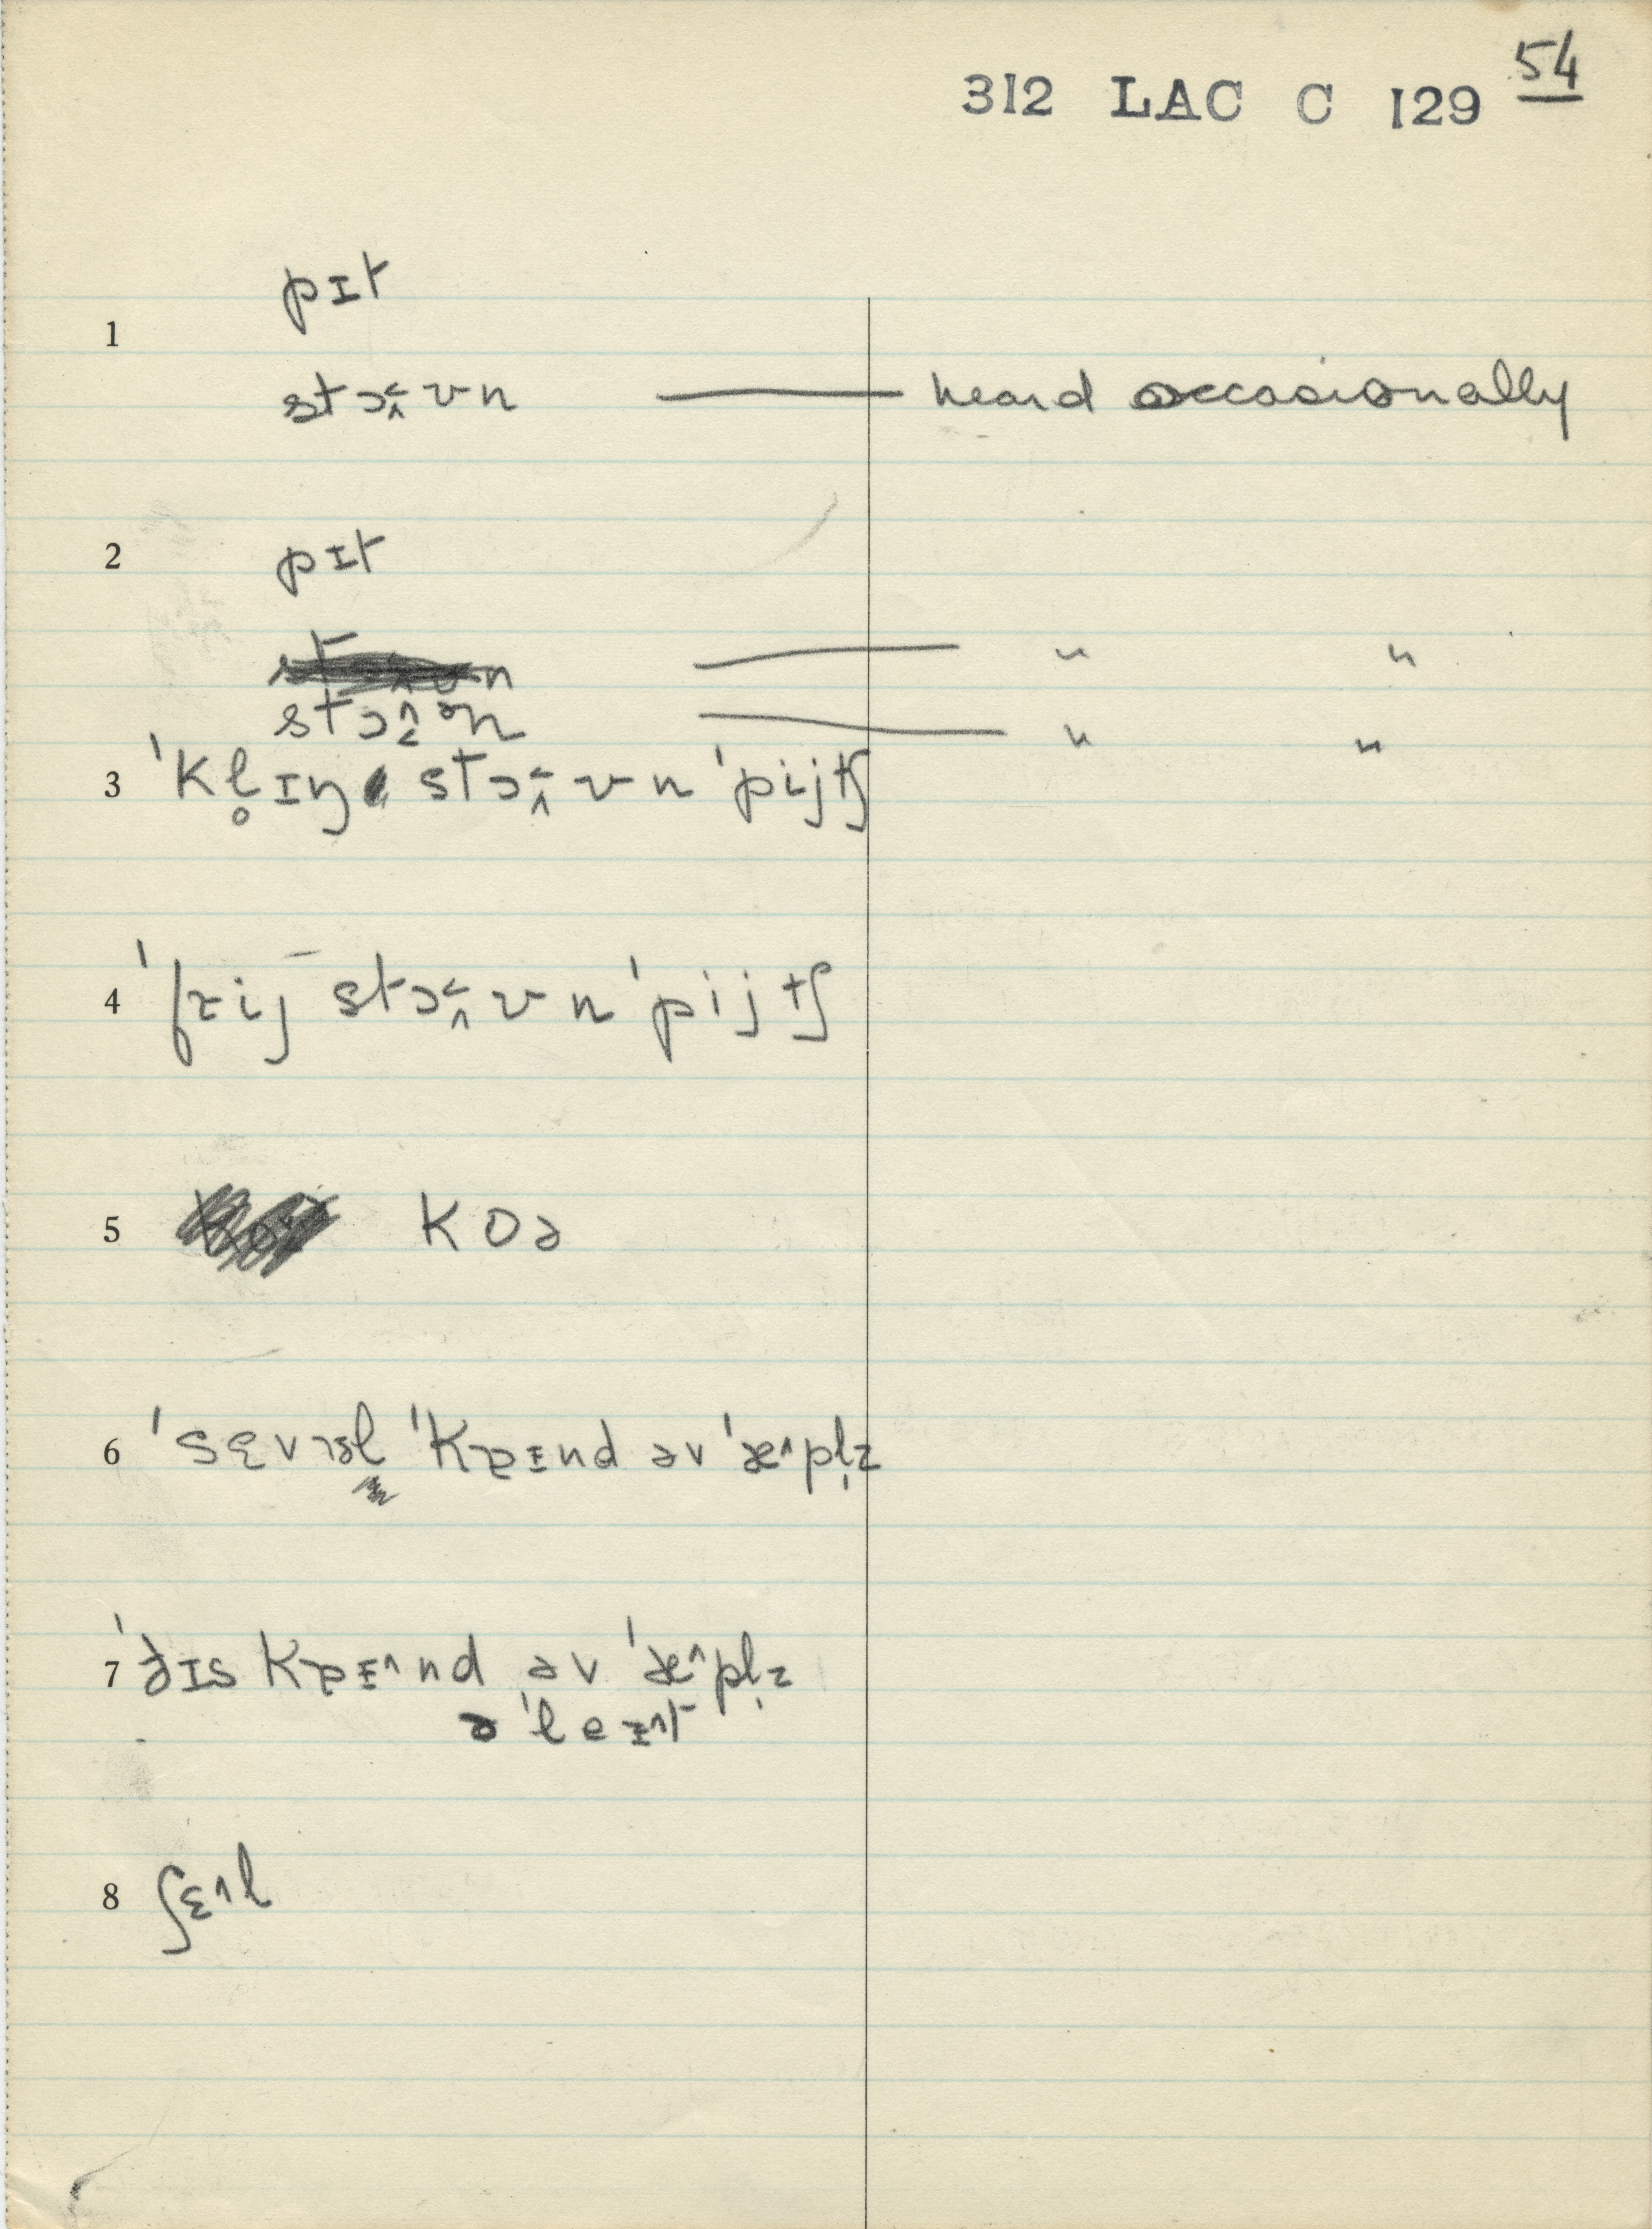 54
312 LAC C 129
1 pɪt
stɔ˂˄ʊn — heard occasionally
2 pɪt
— " "
stɔ˄˂ən — " "
3 ˈkl̥ɪŋ stɔ˂˄ʊn ˈpijtʃ
4 ˈfrij stɔ˂˄ʊn ˈpijtʃ
5 kɒə
6 ˈsɛvrəl ˈkɐɪnd əv ˈæ^pl̩z
7 ˈðɪs kɐɪ^nd əv ˈæ^pl̩z
ə ˈleɪ^t
8 ʃɛ^l